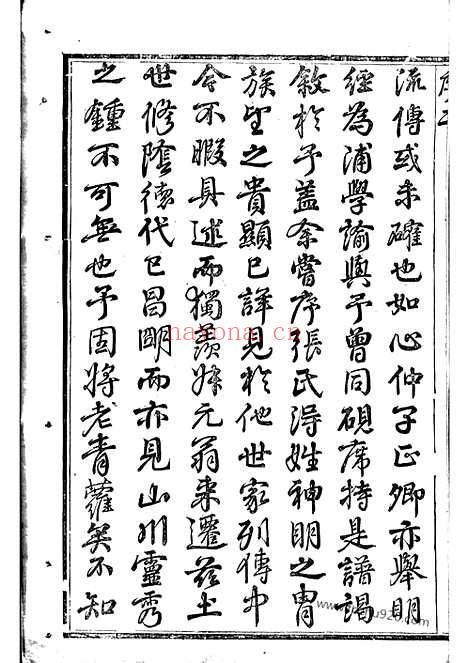 序二
流傳或未確也如心仲子正卿亦舉明
經為浦學諭與予曾同硯席持是譜謁
敘於予蓋余嘗序張氏得姓神明之胄
族望之貴顯已詳見於他世家列傳中
今不暇具述而獨羨妹元翁來遷茲土
世修陰德代已昌明而亦見山川靈秀
之鍾不可無也予固將老青蘿矣不知
nayona.cn